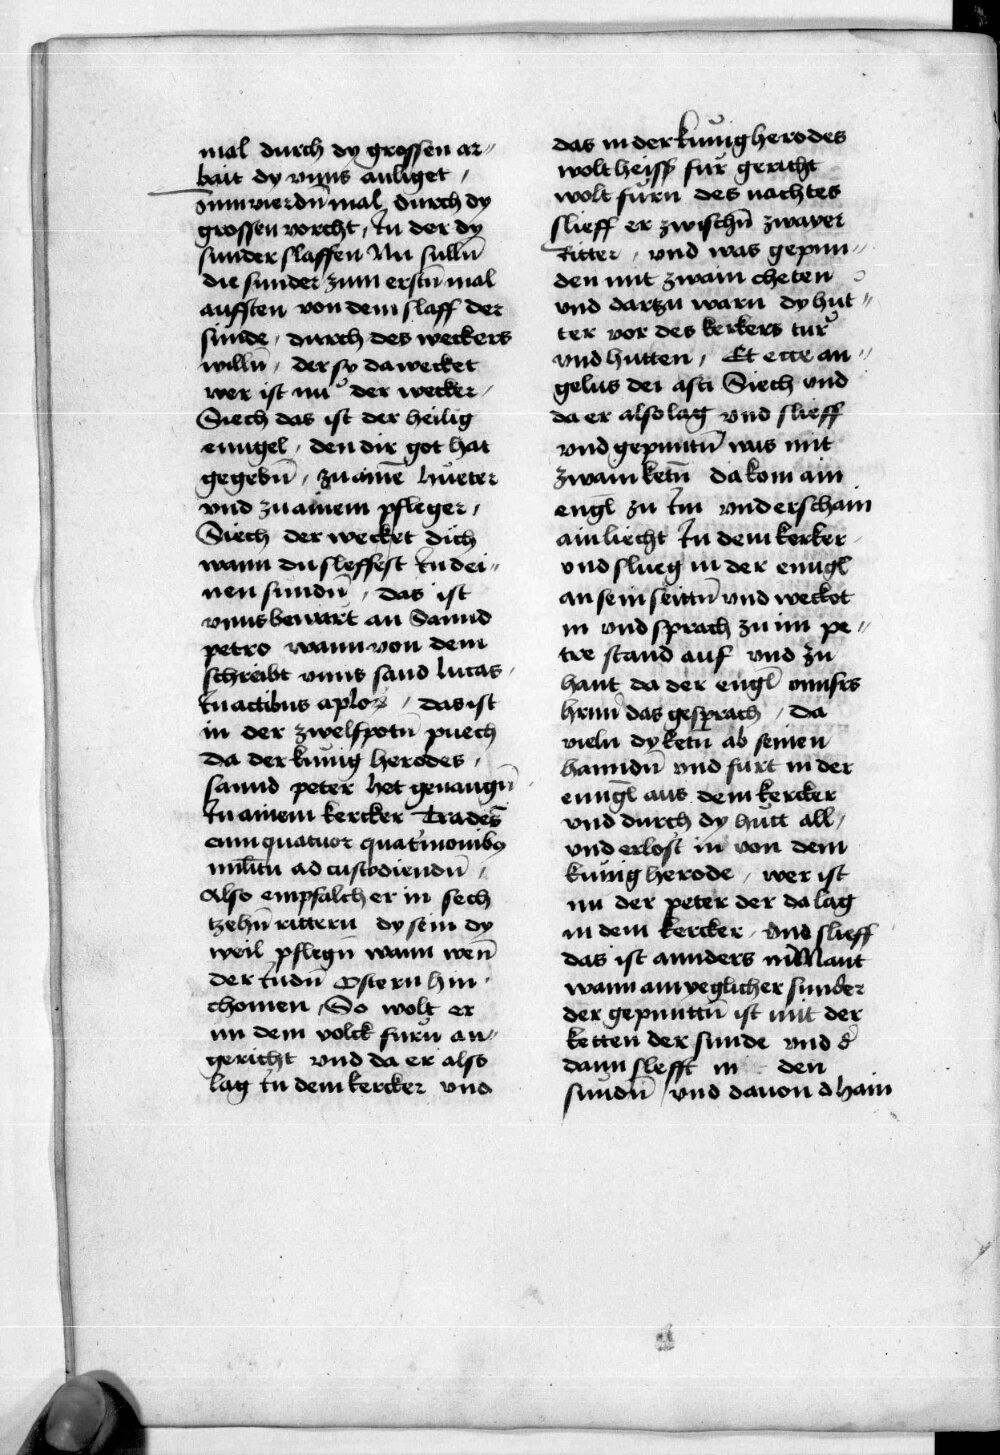 mal durch dy grossen ar〃
bait dy vnns anliget /
Zum vierdn̄ mal durch dy
grossen vorcht / In der dy
sunder slaffen Nu sulln̄
die sunder zum erstn̄ mal
aufsten von dem slaff der
sunde / durch des weckers
willn̄ / der sy da wecket
wer ist nuͦ der wecker /
Siech das ist der heilig
enngel / den dir got hat
gegebn̄ / zu aīnē huͤeter
vnd zu ainem pfleger /
Siech der wecket dich
wann du sleffest In dei〃
nen sundn̄ / das ist
vnns bewart an Sannd
petro wann von dem
schreibt vnns sand lucas /
In actibus aploꝝ / das ist
in der zwelfpotn̄ puech
da der kunig herodes /
sannd peter het geuangn̄
In ainem kercker Tradēs
cum quatuor quat̄nionibꝫ
milītū ad custodiendū /
Also empfalch er in sech
tzehn̄ rittern dy sein dy
weil pflegn̄ wann wen̄
der Iudn̄ Ostern hin
chomen / So wolt er
in dem volck furn̄ an〃
gericht vnd da er also
lag In dem kercker vnd
das in der kunig herodes
wolt heissn̄ fuͤr gericht
wolt fuͤrn des nachtes
slieff er zwischn̄ zwayer
Ritter / vnd was gepun〃
den mit zwain cheten
vnd dartzu warn dy hut〃
ter vor des kerkers tuͤr
vnd hutten / Et ecce an〃
gelus dei asti Siech vnd
da er also lag vnd slieff
vnd gepuntn̄ was mit
zwain ketn̄ da kom ain
engl̄ zu Im vnd erschain
ain liecht In dem kerker
vnd slueg in der enngl̄
an sein seittn̄ vnd weckot
in vnd sprach zu im pe〃
tre stand auf vnd zu
hant da der engl̄ vnnsrs
hrnn̄ das gesprach / da
vieln dy ketn̄ ab seinen
hanndn̄ vnd furt in der
enngl̄ aus dem kercker
vnd durch dy huͤtt all /
vnd erlost in von dem
kunig herode / wer ist
nu der peter der da lag
in dem kercker / vnd slieff
das ist annders
wann ain yeglicher sunder
der gepunttn̄ ist mit der
ketten der sunde vnd d̄
dann slefft in den
sundn̄ / vnd dauon dhain